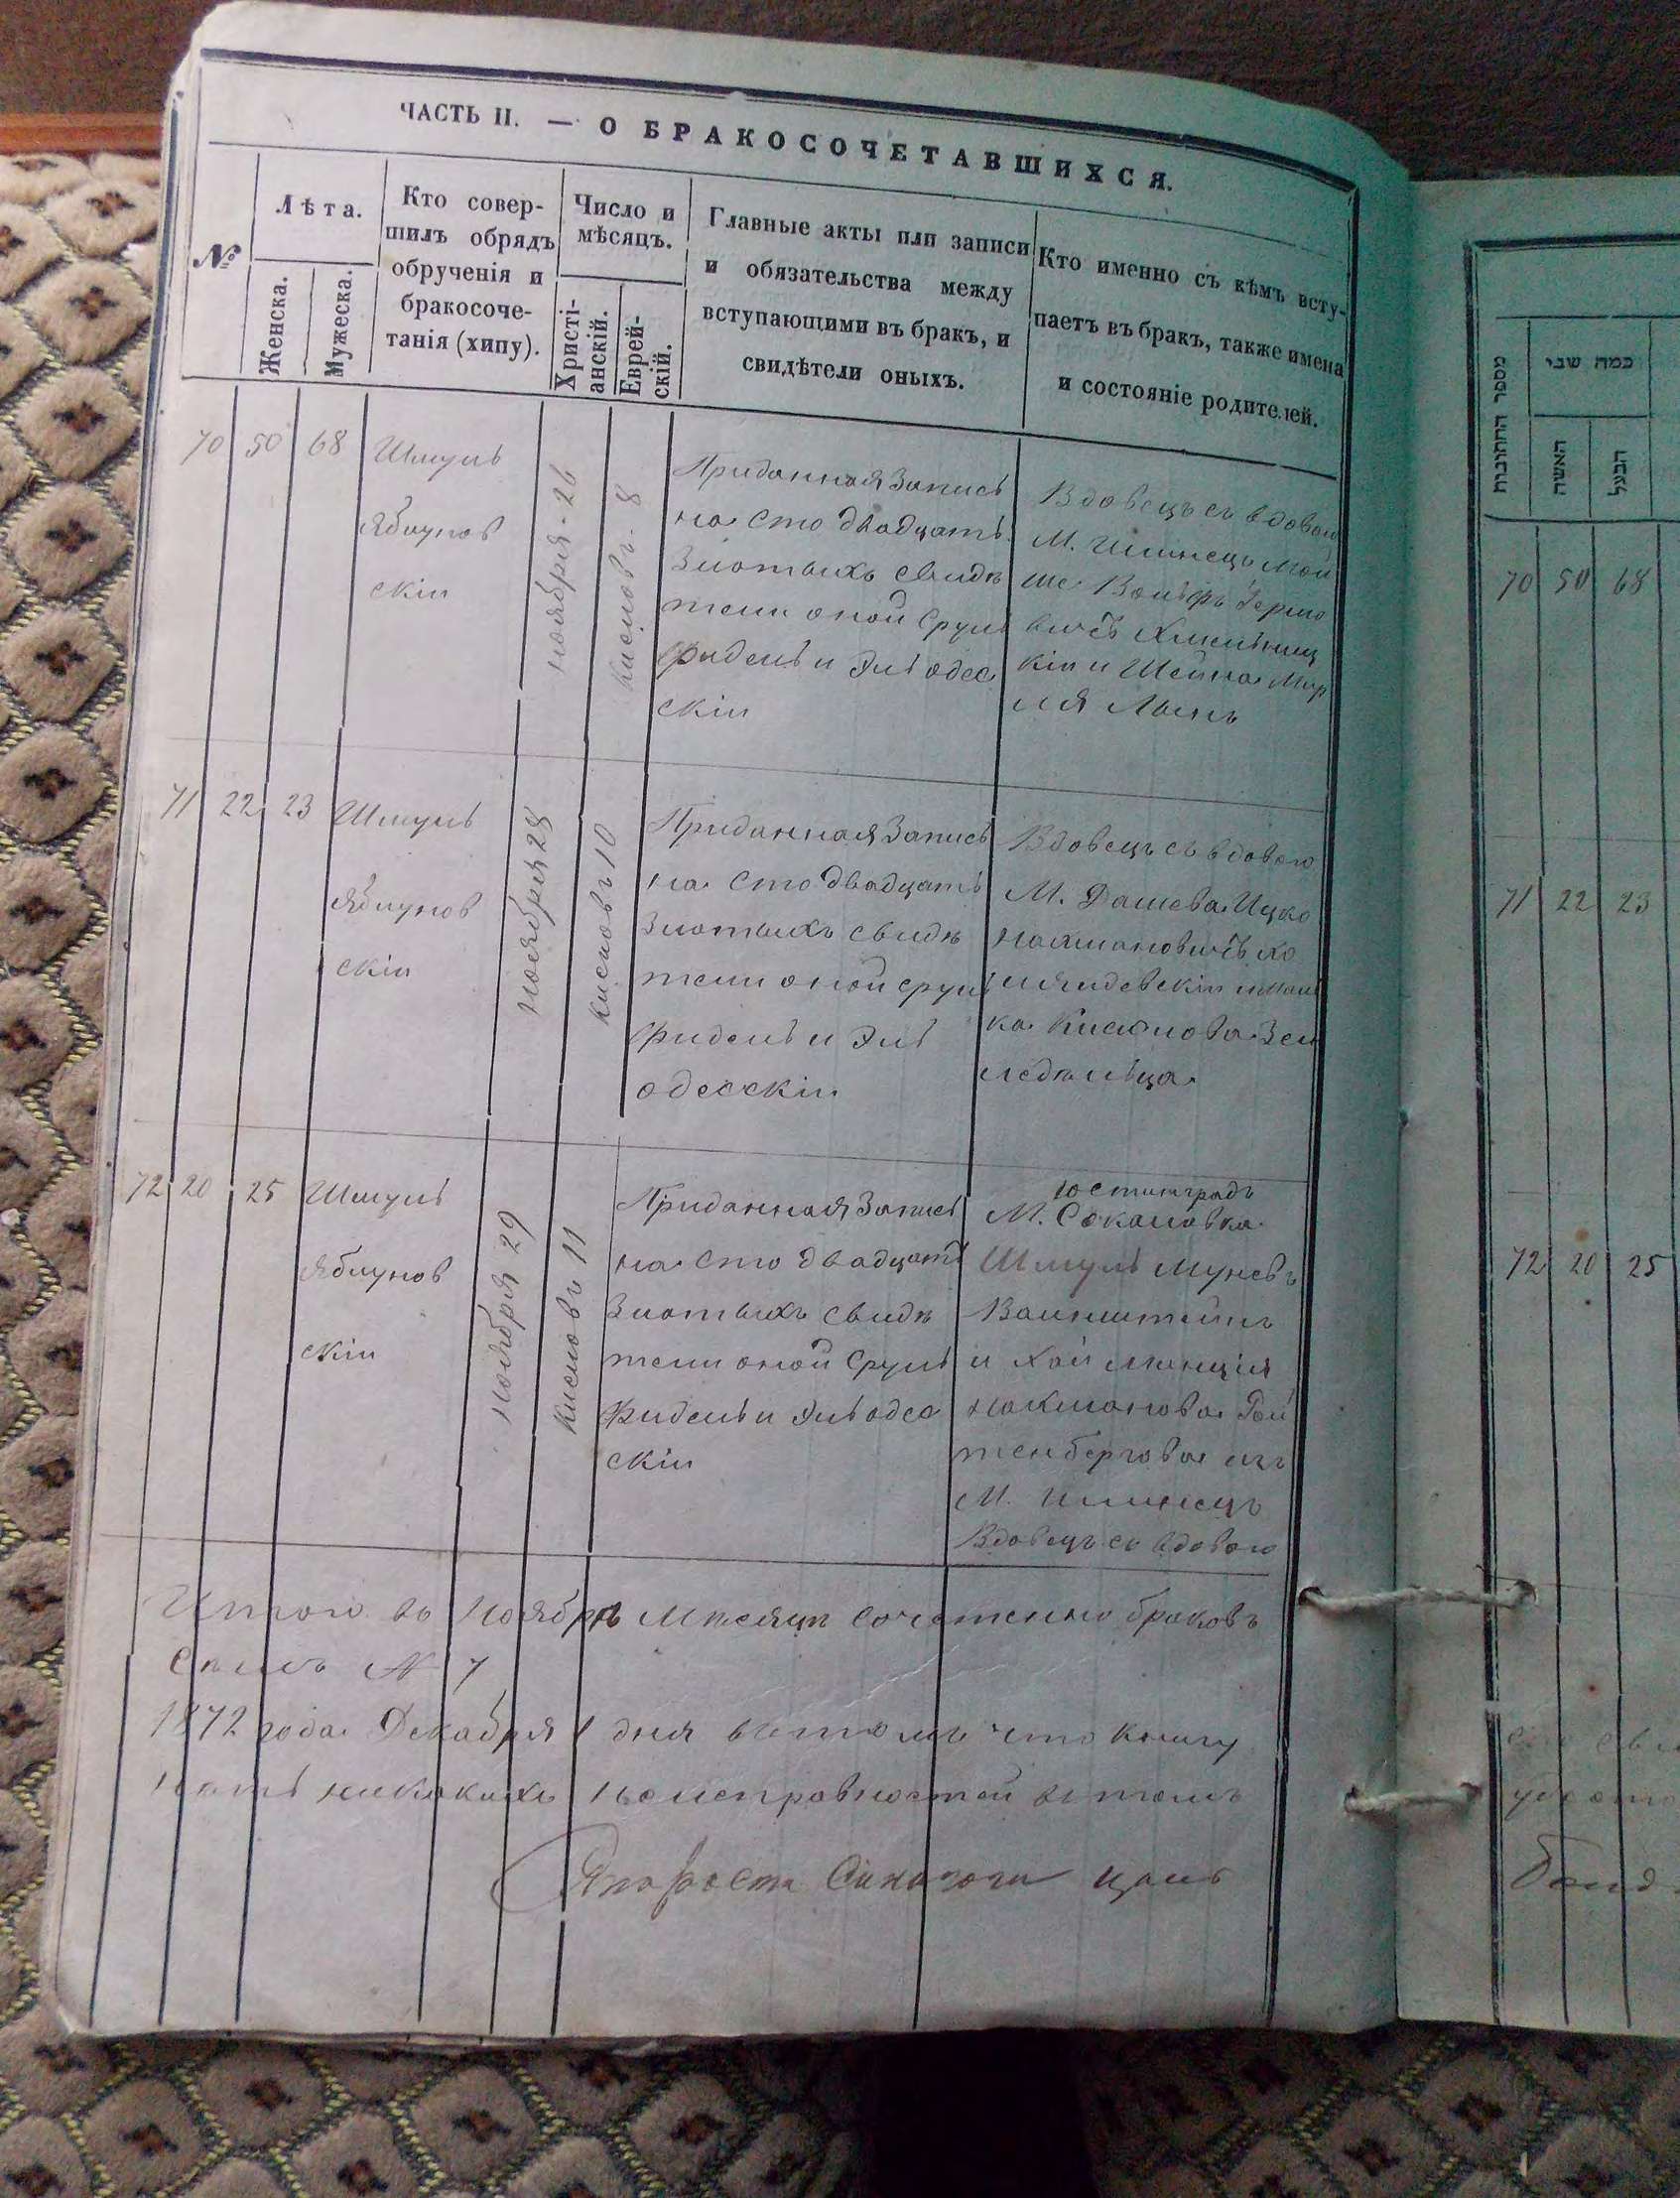 ЧАСТЬ II. — О БРАКОСОЧЕТАВШИХСЯ.
№
Лѣта.
Женска.
Мужеска.
Кто совер-
шилъ обрядъ
обрученія и
бракосоче-
танія (хипу).
Число и
мѣсяцъ.
Христі-
анскій.
Еврей-
скій.
Главные акты или записи
и обязательства между
вступающими въ бракъ, и
свидѣтели оныхъ.
Кто именно съ кѣмъ всту-
паетъ въ бракъ, также имена
и состояніе родителей.
70 50 68
Шмуль
Яблунов
скіи
Ноября 26
Кисловъ 8
Приданная Запись
на сто двадцать
Злотыхъ свидѣ
тели оной Сруль
Фидель и Эль одес
скіи
Вдовецъ съ вдовою
М. Илинецъ Мой
ше Вольфъ Гершо
вичъ Хмельниц
кіи и Шейна Мир
ля
71 22 23
Шмуль
Яблунов
скіи
Ноября 28
Кисловъ 10
Приданная Запись
на сто двадцать
Злотыхъ свидѣ
тели оной Сруль
Фидель и Эль
одесскіи
Вдовецъ съ вдовою
М. Дашева Ицко
Нахмановичъ
ка Кислова Зем
ледѣльца
72 20 25
Шмуль
Яблунов
скіи
Ноября 29
Кисловъ 11
Приданная Запись
на сто двадцать
Злотыхъ свидѣ
тели оной Сруль
Фидель и Эль одес
скіи
юстинградъ
М. Соколовка
Шмуль
Ваинштейнъ
и Хая
Нахманова Рой
тенбергова изъ
М. Илинецъ
Вдовецъ съ вдовою
Итого въ Ноябрѣ Мѣсяцѣ Сочетенно браковъ
Семь № 7
1872 года Декабря 1 дня въ томъ что книгу
нѣтъ никакихъ неисправностей въ томъ
Староста Синагоги
מספר החתונות
כמה שני
האשה
הבעל
70 50 68
71 22 23
72 20 25